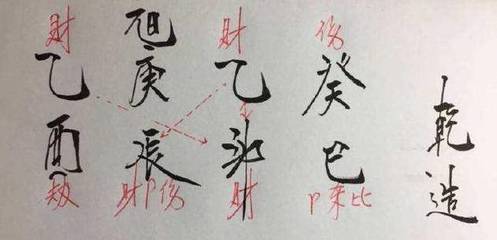 财 日元 财 伤
乙 庚 乙 癸
酉 辰 卯 巳
劫 财卩伤 财 卩杀比
乾造